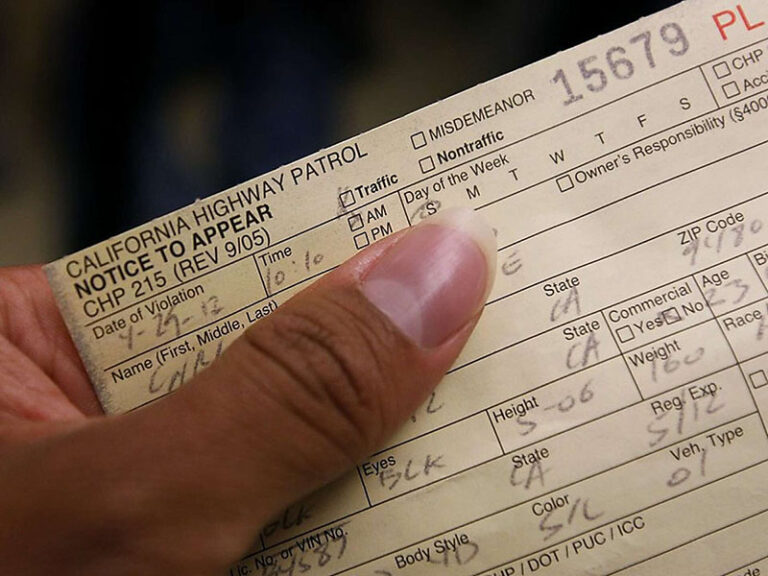 15679 PL
MISDEMEANOR CHP
CALIFORNIA HIGHWAY PATROL Traffic Nontraffic
NOTICE TO APPEAR AM Day of the Week
CHP 215 (REV 9/05) PM S M T W T F S
Owner's Responsibility (§400
Date of Violation Time
4-29-12 10:10
Name (First, Middle, Last)
State ZIP Code
CA
State Commercial Age
CA Yes No 23
Weight Race
160
Height Reg. Exp.
5-06 5/12
Eyes State Veh. Type
BLK CA 01
Lic. No. or VIN No. Body Style Color
4D SIL
/ DOT / PUC / ICC